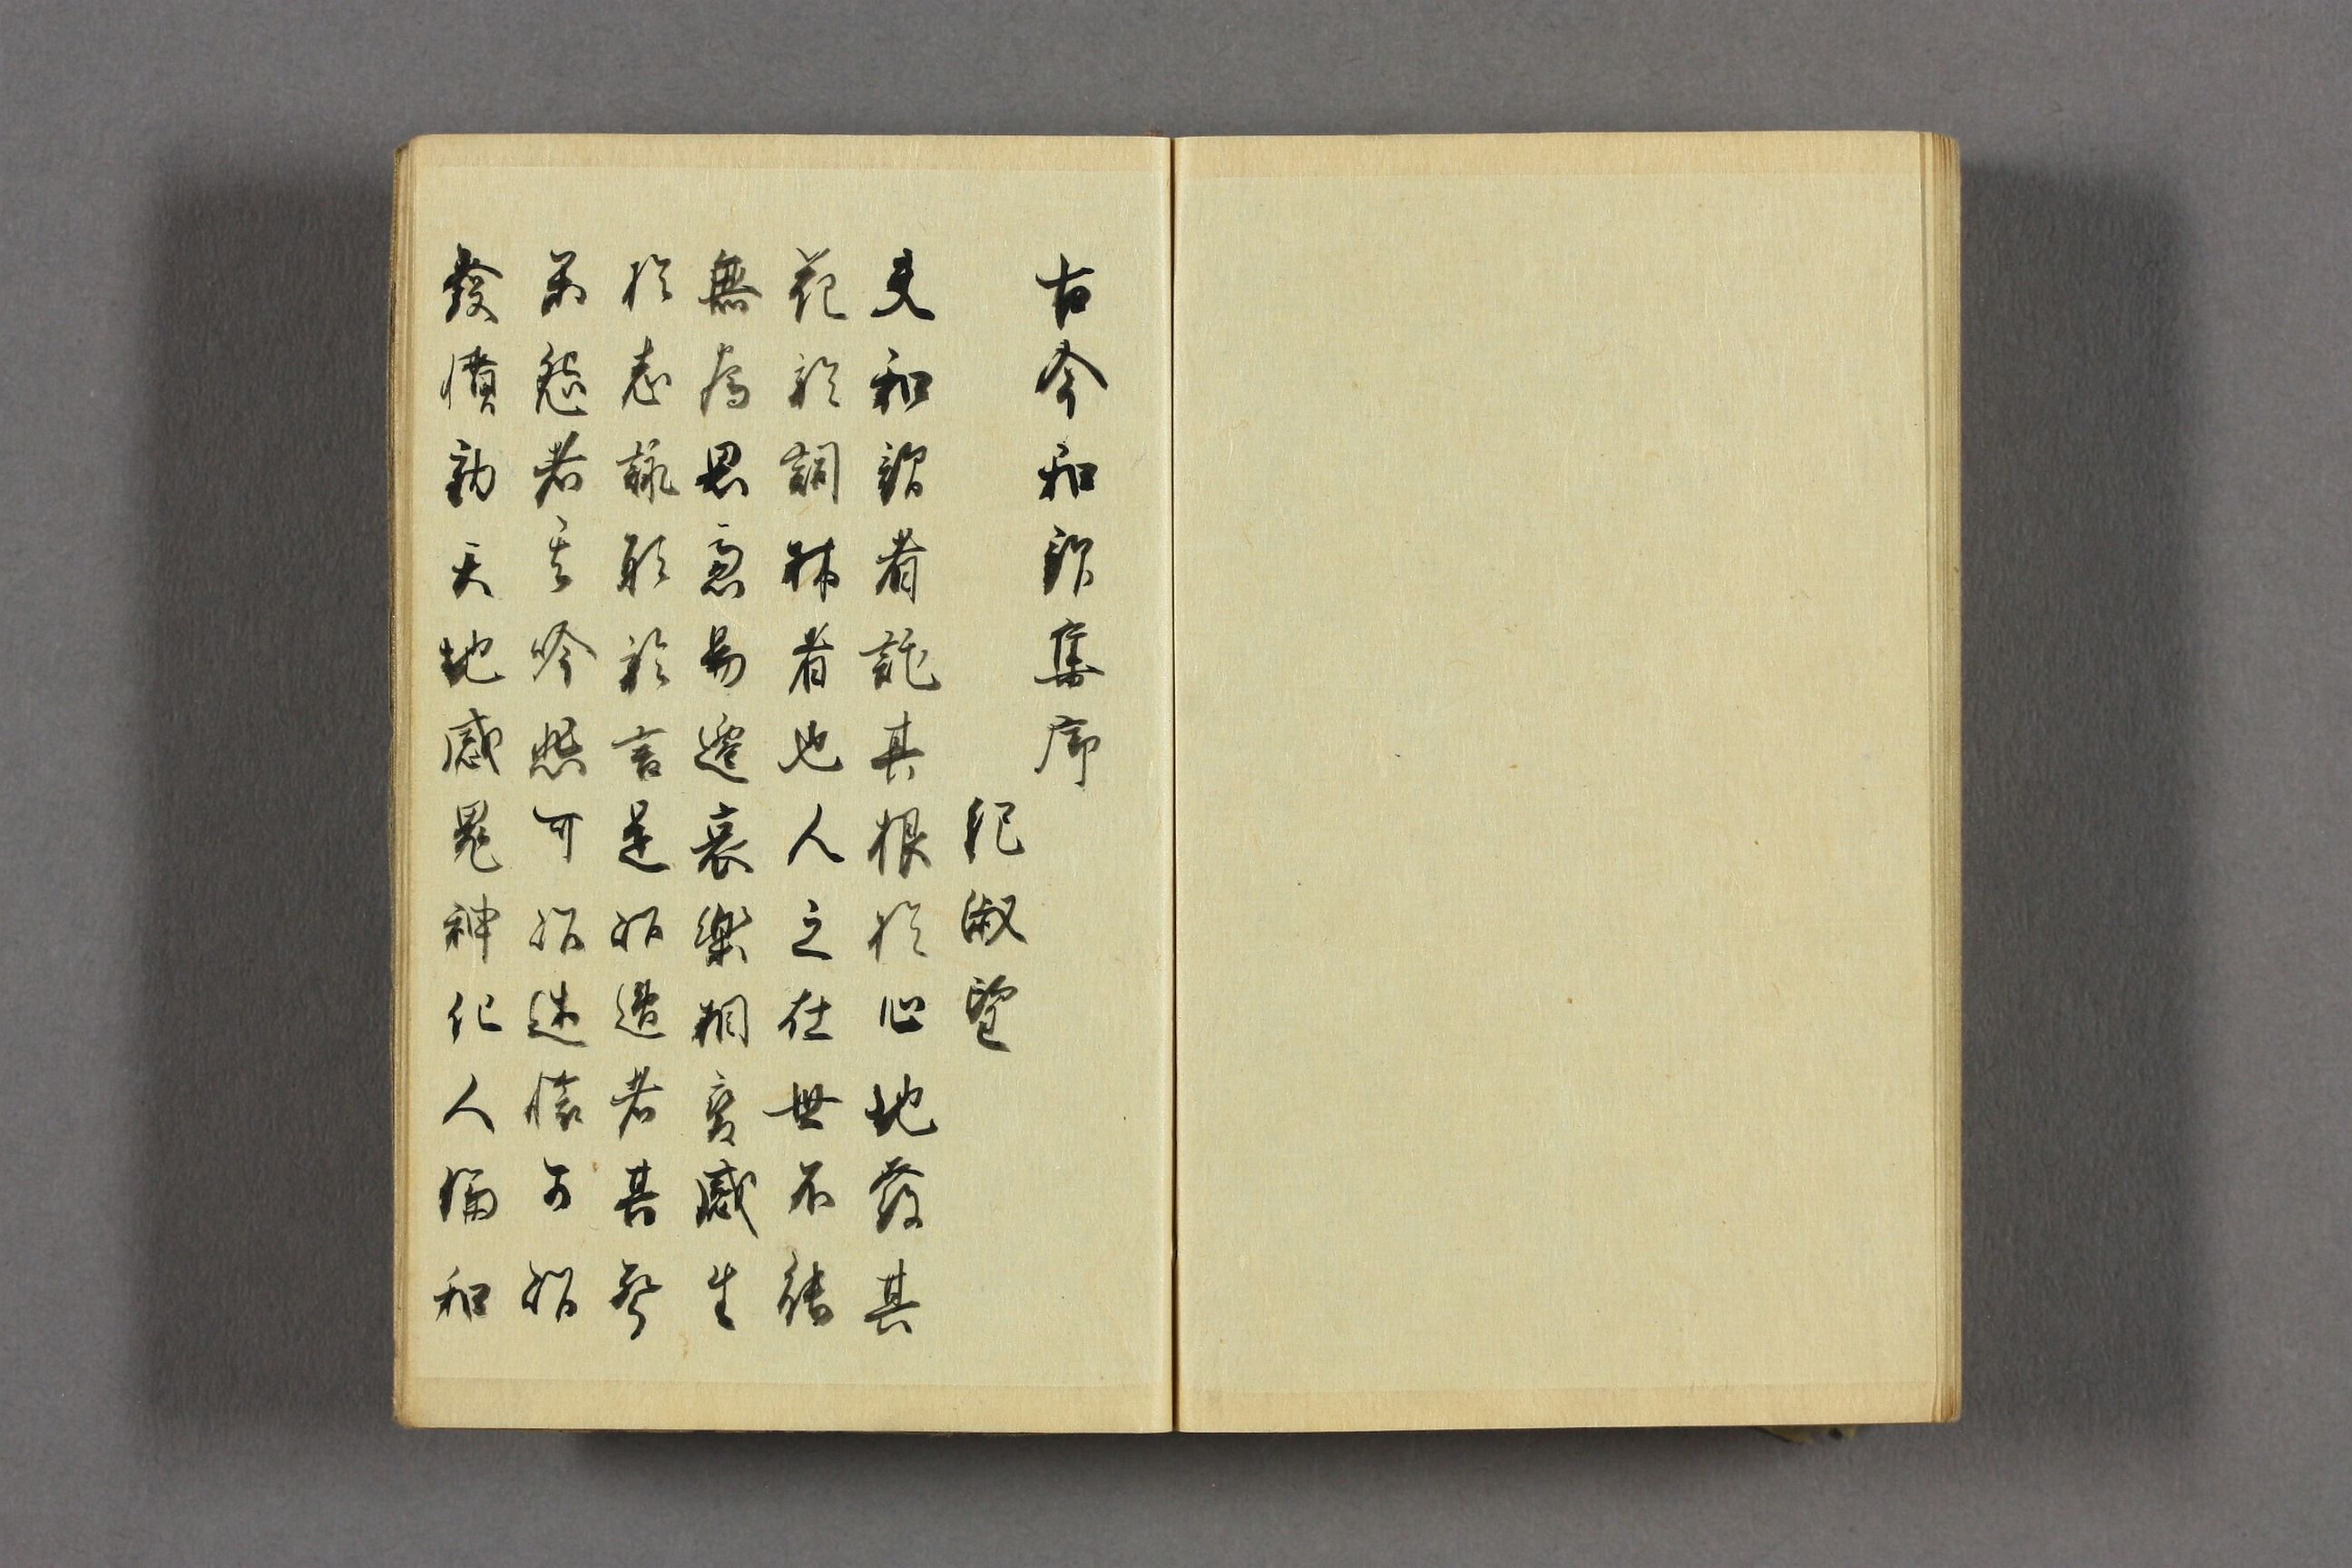 古今和謌集序
紀淑望
夫和謌者託其根於心地發其
花於詞林者也人之在世不能
無為思慮易遷哀樂相變感生
於志詠形於言是以逸者其聲
楽怨者其吟悲可以述懐可以
發憤動天地感鬼神化人倫和